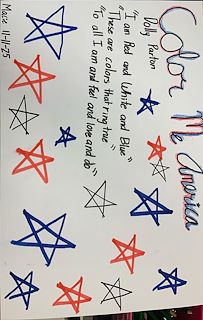 Color Me America
Dolly Parton
"I am Red and White and Blue"
"These are colors that ring true"
"To all I am and feel and love and do"
Mace 11-11-25